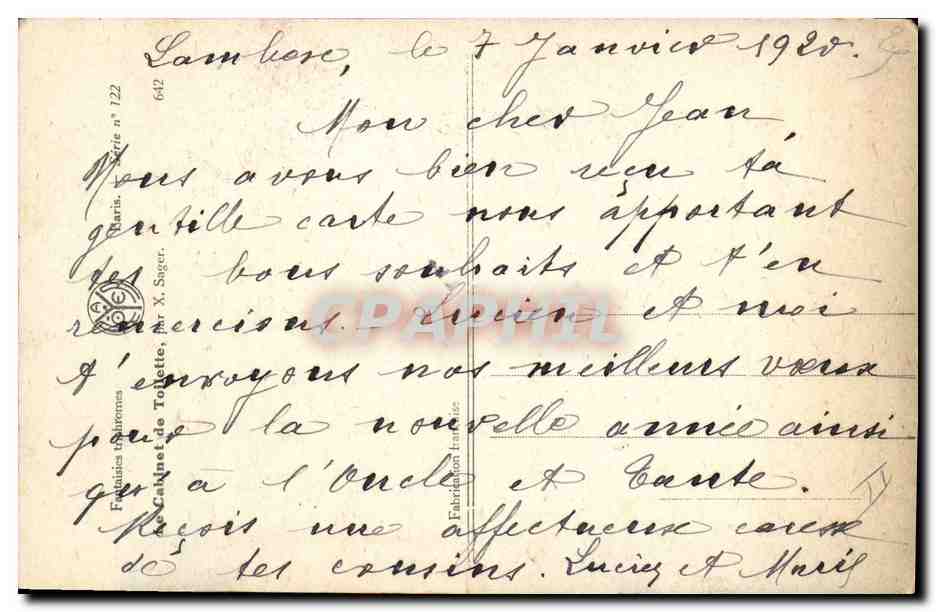 Lambese, le 7 Janvier 1920.
Mon cher Jean,
Nous avons bien reçu ta
gentille carte nous apportant
tes bons souhaits et t'en
remercions. - Lucien et moi
t'envoyons nos meilleurs vœux
pour la nouvelle année ainsi
qu'à l'Oncle et Tante.
Reçois une affectueuse caresse
de tes cousins. Lucien et Marie
CPAPHIL
Fantaisies trichromes
Paris. - Série n° 122
Le Cabinet de Toilette, par X. Sager.
642
Fabrication française